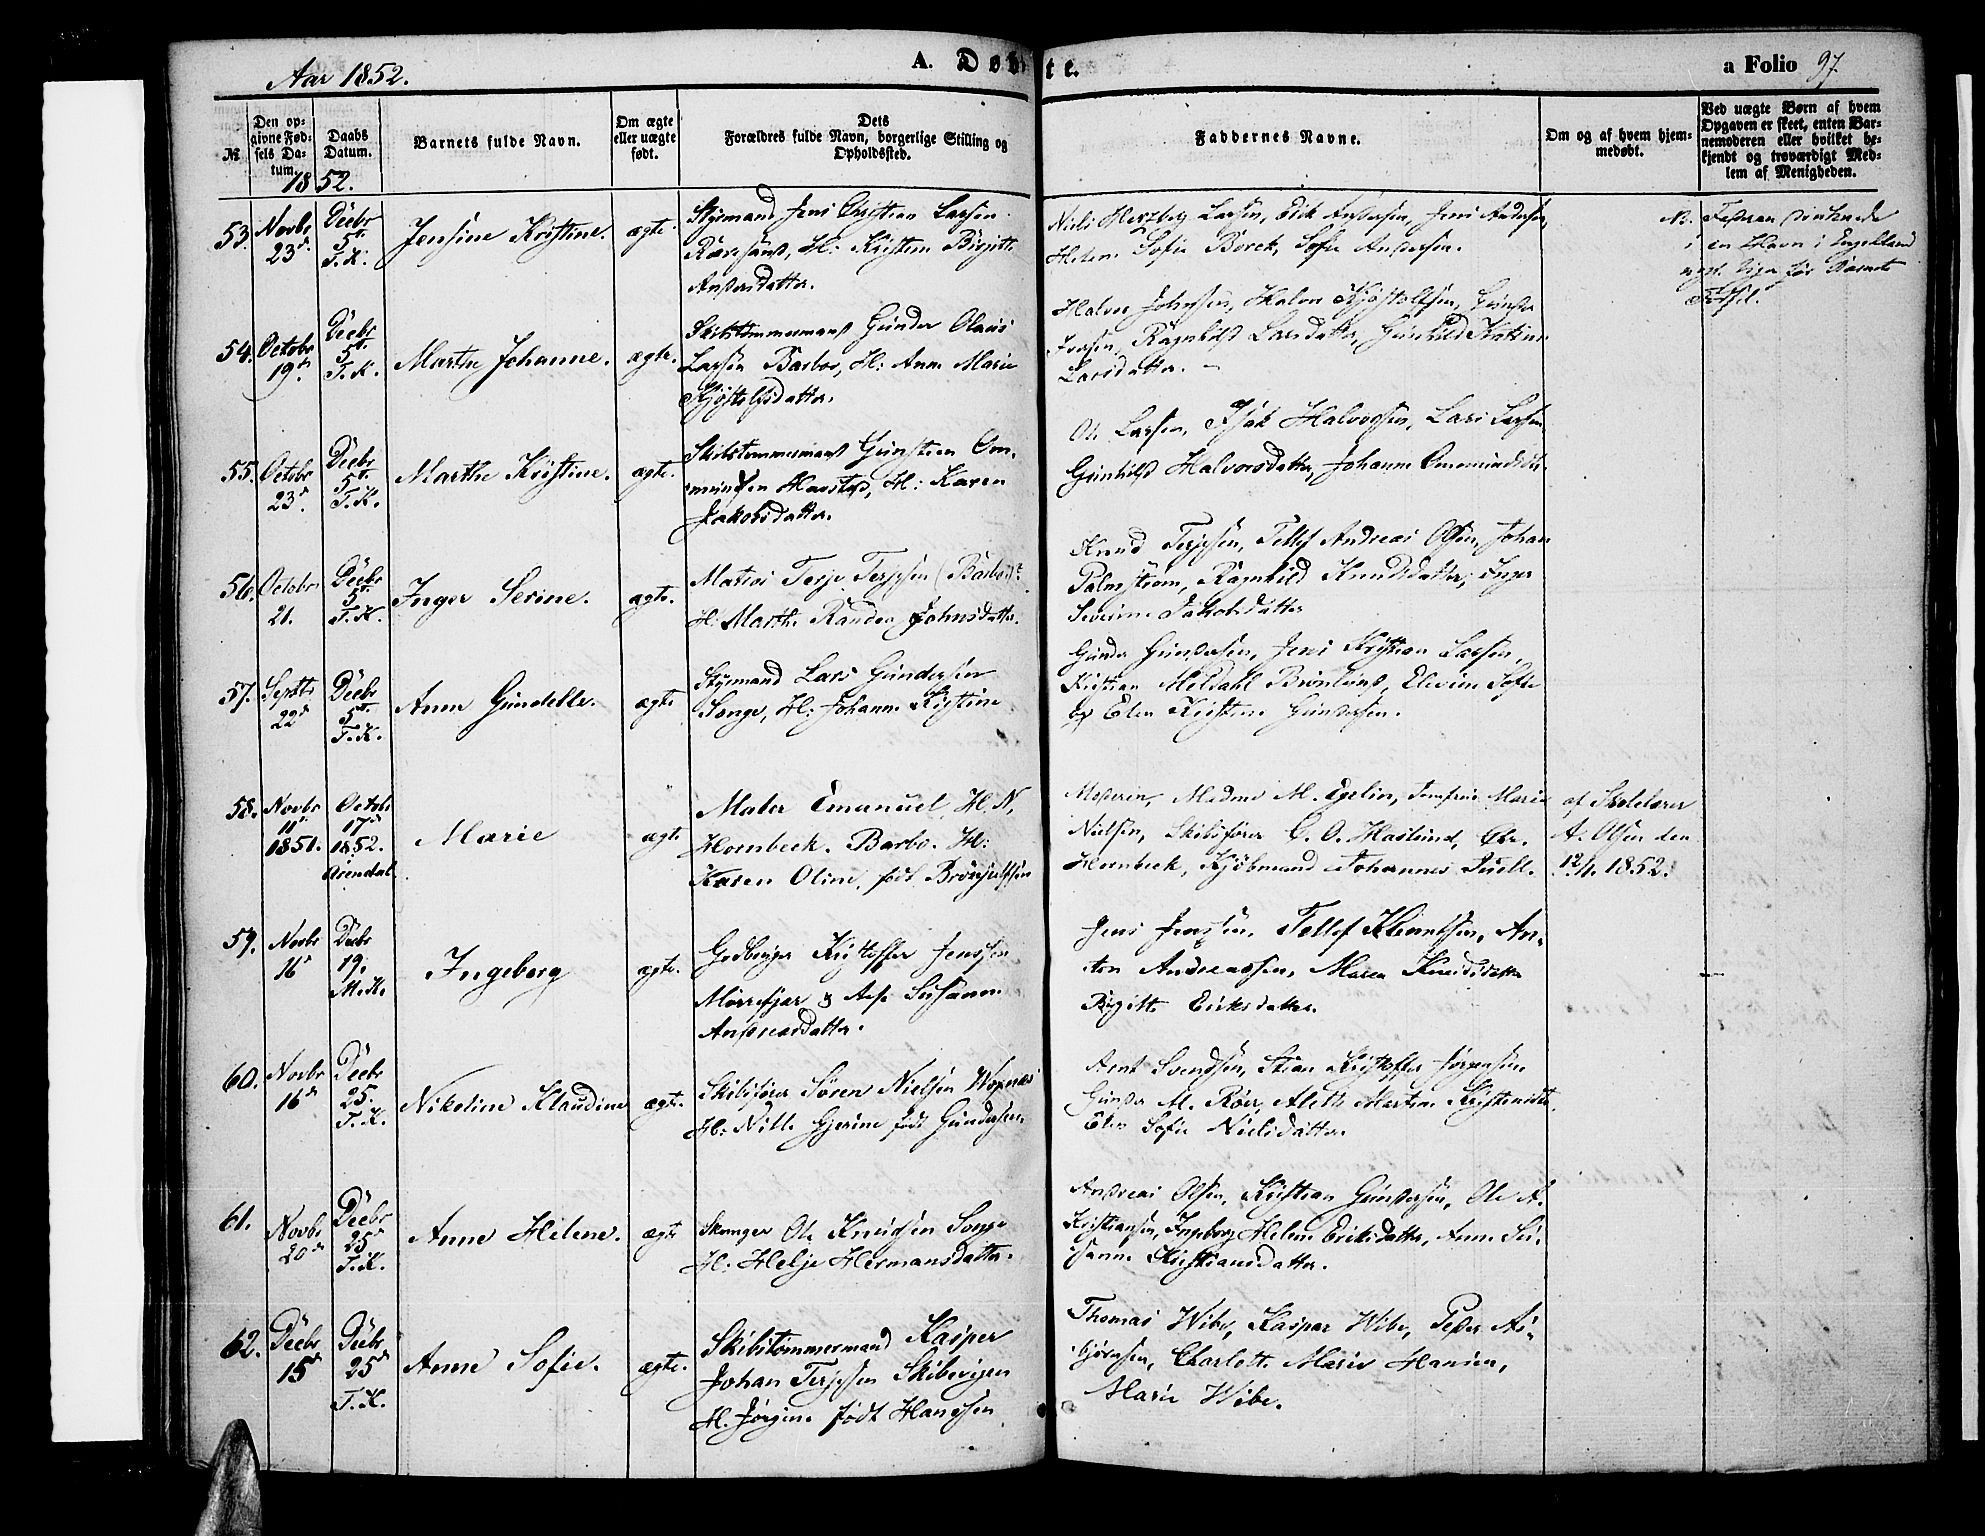 Aar 1852.
A. Døbte.
a Folio 97
№
Den opgivne Fødsels Datum.
Daabs Datum.
Barnets fulde Navn.
Om ægte eller uægte født.
Dets Forældres fulde Navn, borgerlige Stilling og Opholdssted.
Faddernes Navne.
Om og af hvem hjemmedøbt.
Ved uægte Børn af hvem Opgaven er skeet, enten Barnemoderen eller hvilket bekjendt og troværdigt Medlem af Menigheden.
1852.
53. Novbr 23d
Decbr 5te T.K.
Jensine Kristine.
ægte.
Styrmand Jens Christian Larsen
H: Kristine Birgitte
Andersdatter.
Niels Herzberg Larsen, Erik Andersen, Jens Andersen,
Helene Sofie Borck, Sofie Andersen.
i en Havn i Engelland
Dage før Barnets
Fødsel.
54. Octobr 19d
Decbr 5te T.K.
Marthe Johanne.
ægte.
Skibstømmermand Gunder Olaus
Larsen Barbo, H: Anne Marie
Kjøstolfsdatter.
Halvor Johnsen, Halvor Kjøstolfsen, Gunder
Iversen, Ragnhild Larsdatter, Gunhild Katrine
Larsdatter.
55. Octobr 23d
Decbr 5te T.K.
Marthe Kristine.
ægte.
Skibstømmermand Gunsteen Om-
mundsen Harstad, H: Karen
Jakobsdatter.
Ole Larsen, Isak Halvorsen, Lars Larsen
Gunhild Halvorsdatter, Johanne Ommundsdt.
56. Octobr 21.
Decbr 5te T.K.
Inger Serine.
ægte.
Matros Terje Terjesen (Barbo)
H: Marthe Randea Johnsdatter.
Knud Terjesen, Tellef Andreas Olsen, Johan
Palmstrøm, Ragnhild Knudsdatter, Inger
Severine Jakobsdatter
57. Septbr 22d
Decbr 5te T.K.
Anne Gundelle.
ægte
Styrmand Lars Gundersen
Songe, H: Johanne Kristine
Gunder Gundersen, Jens Kristian Larsen,
Kristian Meldahl Brønlund, Elevine Sofie
og Elen Kristine Gundersen.
58. Novbr 11te 1851.
Octobr 17de 1852. Arendal
Marie
ægte
Maler Emanuel H. N.
Hornbeck. Barbo. H:
Karen Oline, født
Moderen, Madme M. Egelin, Jomfrue Marie
Nielsen, Skibsfører C. O. Haslund, Chr.
Hornbeck, Kjøbmand Johannes Tuell.
af Skolelærer
A. Olsen den
12/1. 1852.
59. Novbr 16d
Decbr 19. M.K.
Ingeborg
ægte.
Gods Kristoffer Jenssen
Mørefjær & Susanne
Andreasdatter.
Jens Jenssen, Tellef Klemetsen, An-
ton Andreassen, Maren Knudsdatter
Birgitte Eriksdatter.
60. Novbr 16d
Decbr 25. T.K.
Nikoline Klaudine
ægte.
Skibsfører Søren Nielsen
H: Nille Gjerine født Gundersen
Arnt Svendsen, Stian Kristoffer Jørgensen
Gunder M. Røer, Alette Martine Kristensdt.
Elen Sofie Nielsdatter.
61. Novbr 20d
Decbr 25d T.K.
Anne Helene.
ægte
Ole Knudsen Songe
H: Helje Hermansdatter.
Andreas Olsen, Kristian Gundersen, Ole A.
Kristiansen, Ingeborg Helene Eriksdatter, Anne Su-
sanne Kristiansdatter.
62. Decbr 15d
Decbr 25d T.K.
Anne Sofie.
ægte.
Skibstømmermand Kasper
Johan Terjesen Skibevigen
H. Jørgine født Hanssen
Thomas Wibe, Kaspar Wibe, Peder As-
bjørnsen, Charlotte Marie Hansen,
Marie Wibe.